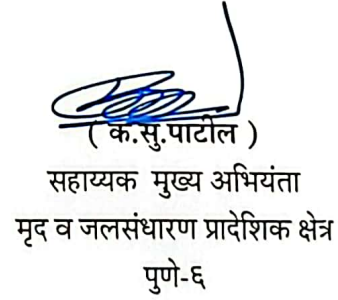 ( क.सु.पाटील )
सहाय्यक मुख्य अभियंता
मृद व जलसंधारण प्रादेशिक क्षेत्र
पुणे-६